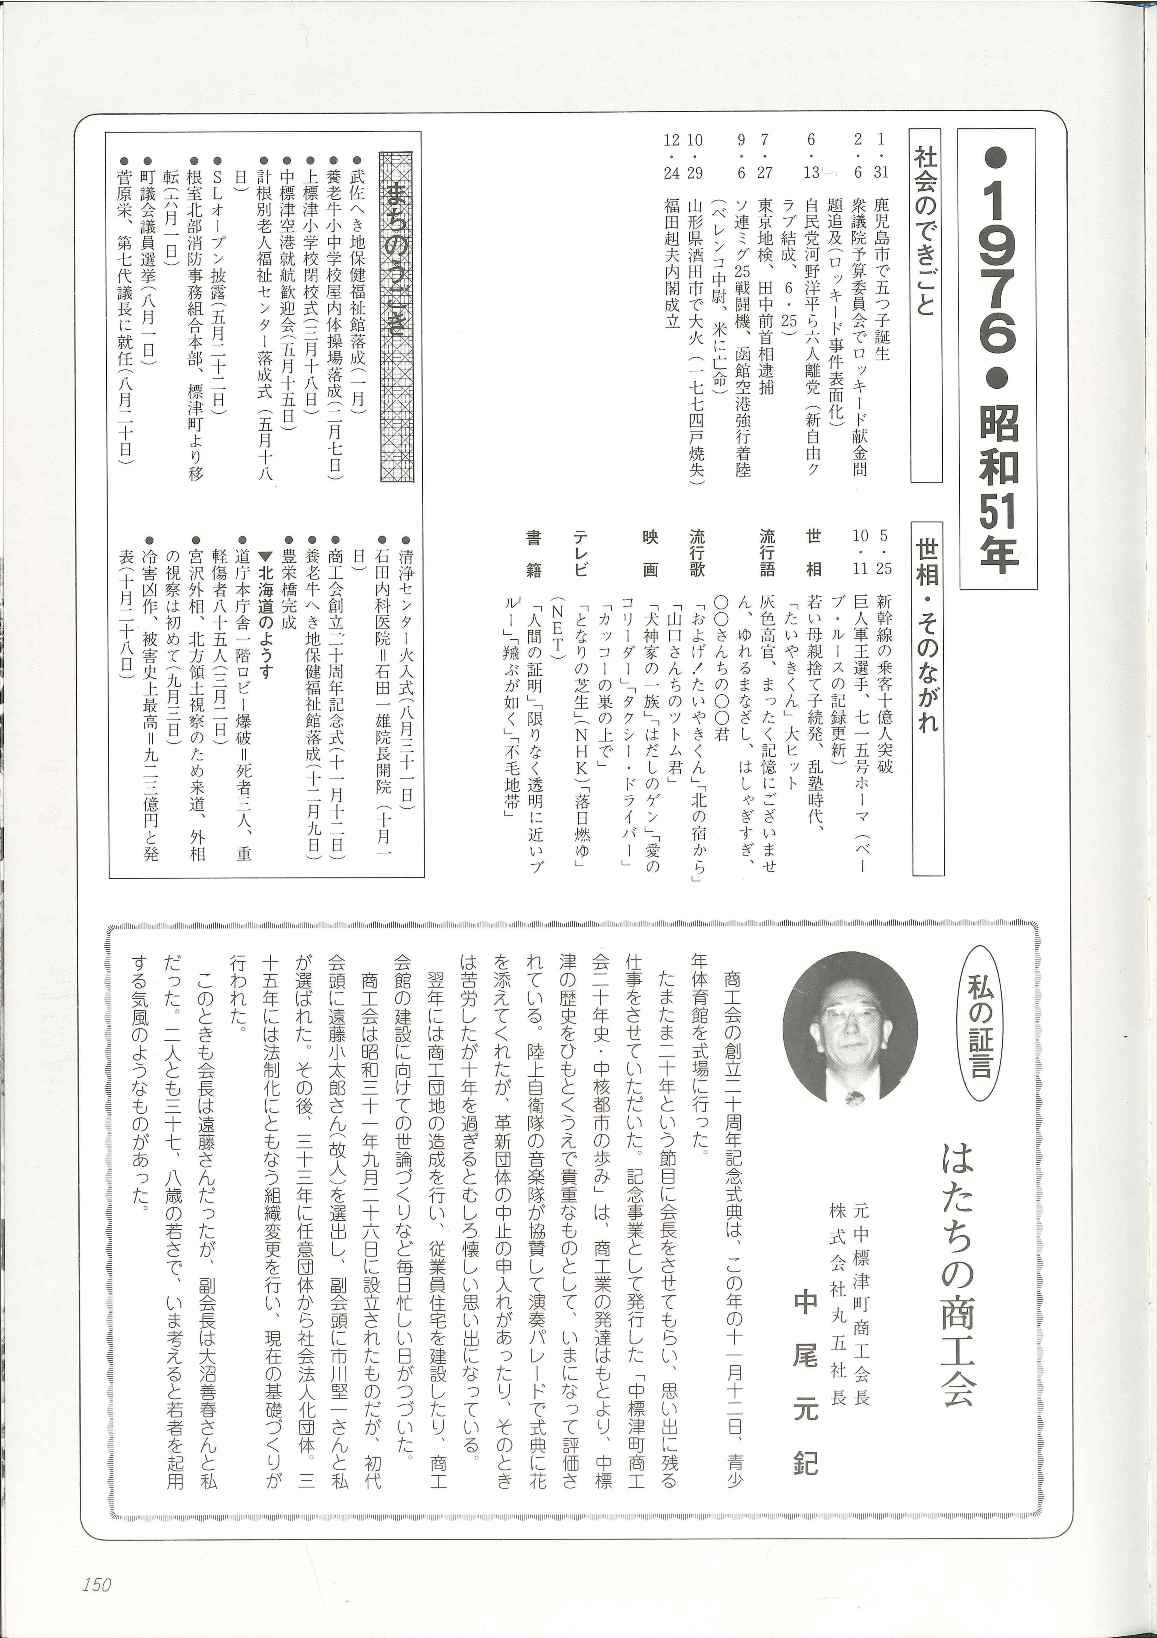 ●1976●昭和51年
社会のできごと
1・31 鹿児島市で五つ子誕生
2・6 衆議院予算委員会でロッキード献金問
題追及(ロッキード事件表面化)
6・13 自民党河野洋平ら六人離党(新自由ク
ラブ結成、6・25)
7・27 東京地検、田中前首相逮捕
9・6 ソ連ミグ25戦闘機、函館空港強行着陸
(ベレンコ中尉、米に亡命)
10・29 山形県酒田市で大火(一七七四戸焼失)
12・24 福田赳夫内閣成立
世相・そのながれ
5・25 新幹線の乗客十億人突破
10・11 巨人軍王選手、七一五号ホーマ(ベー
ブ・ルースの記録更新)
世相 若い母親捨て子続発、乱塾時代、
「たいやきくん」大ヒット
流行語 灰色高官、まったく記憶にございませ
ん、ゆれるまなざし、はしゃぎすぎ、
〇〇さんちの〇〇君
流行歌 「およげ!たいやきくん」「北の宿から」
「山口さんちのツトム君」
映画 「犬神家の一族」「はだしのゲン」「愛の
コリーダー」「タクシー・ドライバー」
「カッコーの巣の上で」
テレビ 「となりの芝生」(NHK)「落日燃ゆ」
(NET)
書籍 「人間の証明」「限りなく透明に近いブ
ルー」「翔ぶが如く」「不毛地帯」
まちのうごき
●武佐へき地保健福祉館落成(一月)
●養老牛小中学校屋内体操場落成(二月七日)
●上標津小学校閉校式(三月十八日)
●中標津空港就航歓迎会(五月十五日)
●計根別老人福祉センター落成式(五月十八
日)
●SLオープン披露(五月二十二日)
●根室北部消防事務組合本部、標津町より移
転(六月一日)
●町議会議員選挙(八月一日)
●菅原栄、第七代議長に就任(八月二十日)
●清浄センター火入式(八月三十一日)
●石田内科医院=石田一雄院長開院(十月一
日)
●商工会創立二十周年記念式(十一月十二日)
●養老牛へき地保健福祉館落成(十二月九日)
●豊栄橋完成
▼北海道のようす
●道庁本庁舎一階ロビー爆破=死者二人、重
軽傷者八十五人(三月二日)
●宮沢外相、北方領土視察のため来道、外相
の視察は初めて(九月三日)
●冷害凶作、被害史上最高=九二三億円と発
表(十月二十八日)
私の証言
はたちの商工会
元中標津町商工会長
株式会社丸五社長
中尾元紀
商工会の創立二十周年記念式典は、この年の十一月十二日、青少
年体育館を式場に行った。
たまたま二十年という節目に会長をさせてもらい、思い出に残る
仕事をさせていただいた。記念事業として発行した「中標津町商工
会二十年史・中核都市の歩み」は、商工業の発達はもとより、中標
津の歴史をひもとくうえで貴重なものとして、いまになって評価さ
れている。陸上自衛隊の音楽隊が協賛して演奏パレードで式典に花
を添えてくれたが、革新団体の中止の申入れがあったり、そのとき
は苦労したが十年を過ぎるとむしろ懐しい思い出になっている。
翌年には商工団地の造成を行い、従業員住宅を建設したり、商工
会館の建設に向けての世論づくりなど毎日忙しい日がつづいた。
商工会は昭和三十一年九月二十六日に設立されたものだが、初代
会頭に遠藤小太郎さん(故人)を選出し、副会頭に市川堅一さんと私
が選ばれた。その後、三十三年に任意団体から社会法人化団体。三
十五年には法制化にともなう組織変更を行い、現在の基礎づくりが
行われた。
このときも会長は遠藤さんだったが、副会長は大沼善春さんと私
だった。二人とも三十七、八歳の若さで、いま考えると若者を起用
する気風のようなものがあった。
150